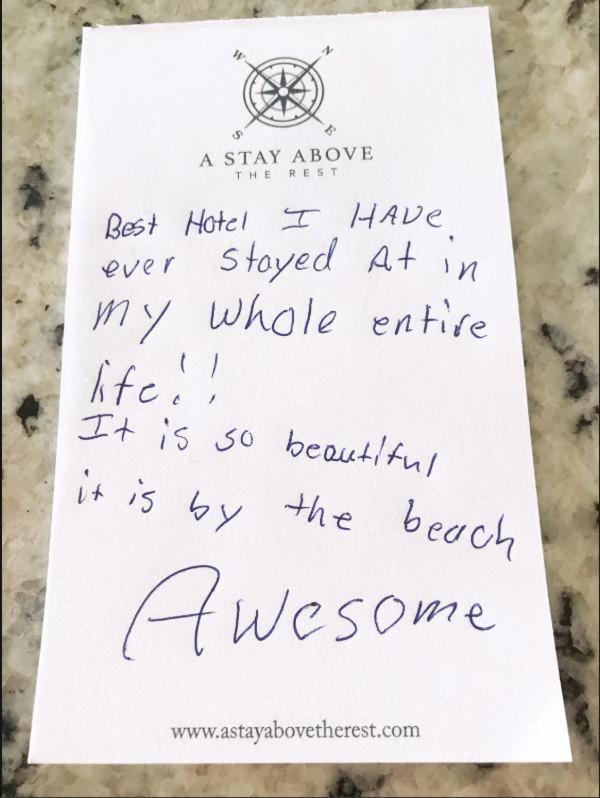 W N
S E
A STAY ABOVE
THE REST
Best Hotel I HAVE
ever stayed At in
my whole entire
life!!
It is so beautiful
it is by the beach
Awesome
www.astayabovetherest.com